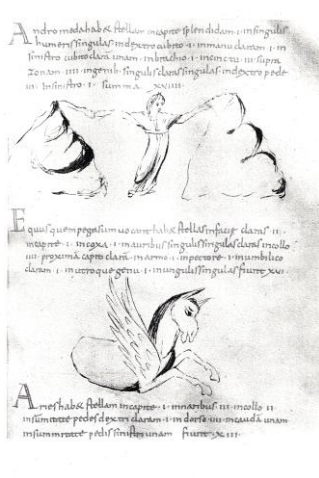 Andromoda habet stellam in capite splendidam · i · in singulis
humeris singulas · in dextro cubito · i · in manu claram · i · in
sinistro cubito claram unam · in brachio · i · in cinctu · iii · supra
zonam · iiii · in genib; singulis claras singulas · in dextro pede
in sinistro · i · summa xxiiii
Equus quem pegasum vocant habet stellas in facie claras · ii ·
in capite · i · in coxa · i · in auribus singulis singulas claras in collo
iiii · proxima capiti clara · in armo · i · in pectore · i · in umbilico
claram · i · in utroque genu · i · in ungulis singulas fiunt xvii
Aries habet stellam in capite · i · in naribus · iii · in collo · ii
in summitate pedes dextri claram · i · in dorso · iiii · in cauda unam
in summitate pedis sinistri unam fiunt · xiii ·